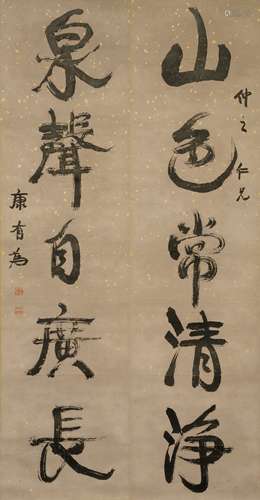 山色常清淨
仲之仁兄
泉聲自廣長
康有為